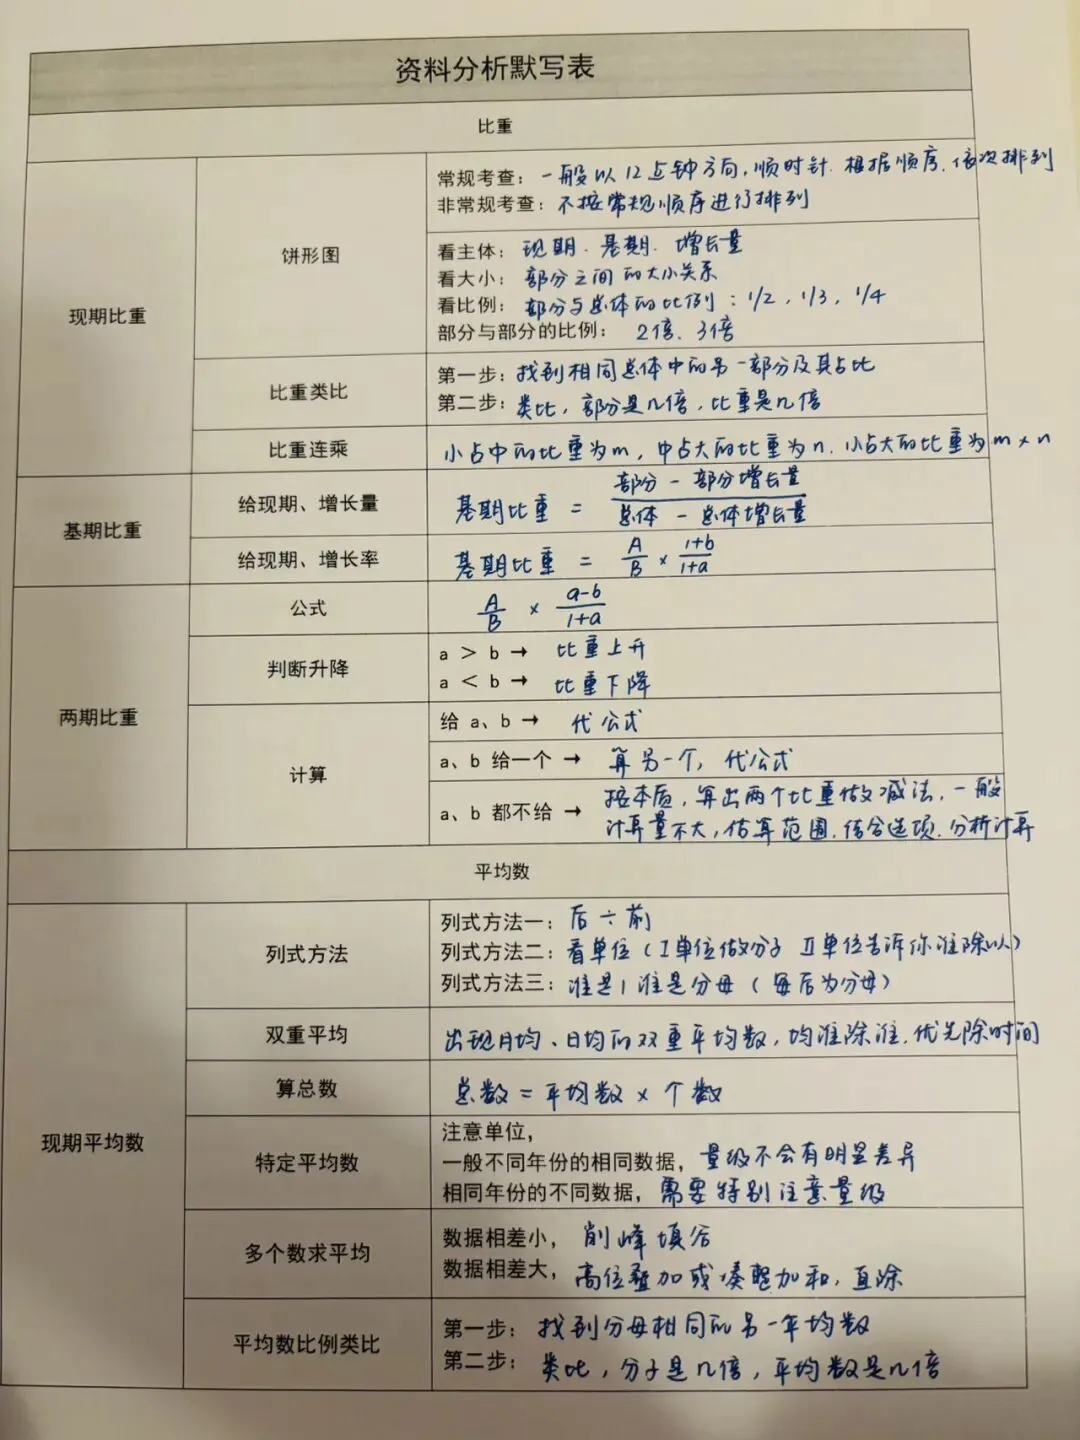 资料分析默写表
比重
现期比重
饼形图
常规考查：一般以12点钟方向，顺时针．根据顺序．依次排列
非常规考查：不按常规顺序进行排列
看主体：现期．基期．增长量
看大小：部分之间的大小关系
看比例：部分与总体的比例：1/2，1/3，1/4
部分与部分的比例：2倍、3倍
比重类比
第一步：找到相同总体中的另一部分及其占比
第二步：类比，部分是几倍，比重是几倍
比重连乘
小占中的比重为m，中占大的比重为n．小占大的比重为m×n
基期比重
给现期、增长量
基期比重 = (部分 - 部分增长量)/(总体 - 总体增长量)
给现期、增长率
基期比重 = A/B × (1+b)/(1+a)
两期比重
公式
A/B × (a-b)/(1+a)
判断升降
a > b → 比重上升
a < b → 比重下降
计算
给 a、b → 代公式
a、b 给一个 → 算另一个，代公式
a、b 都不给 → 按本质，算出两个比重做减法，一般
计算量不大，估算范围．结合选项．分析计算
平均数
现期平均数
列式方法
列式方法一：后÷前
列式方法二：看单位（I单位做分子 II单位告诉你谁除以）
列式方法三：谁是1谁是分母（每后为分母）
双重平均
出现月均、日均的双重平均数，均谁除谁．优先除时间
算总数
总数=平均数×个数
特定平均数
注意单位，
一般不同年份的相同数据，量级不会有明显差异
相同年份的不同数据，需要特别注意量级
多个数求平均
数据相差小，削峰填谷
数据相差大，高位叠加或凑整加和，直除
平均数比例类比
第一步：找到分母相同的另一平均数
第二步：类比，分子是几倍，平均数是几倍